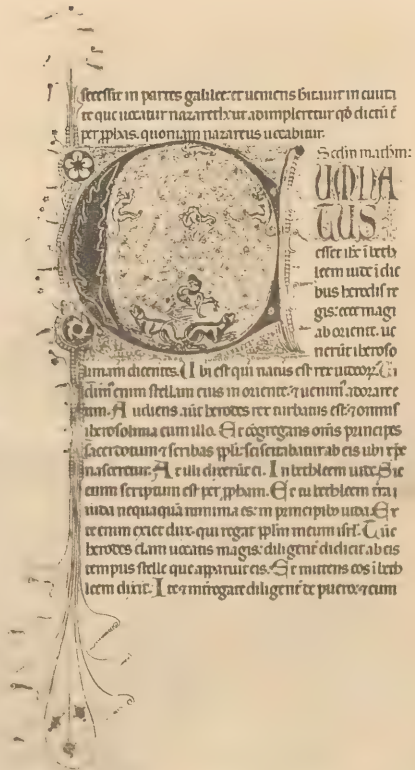 secessit in partes galilee. et ueniens hitauit in ciuita
te que uocatur nazareth. ut adimpleretur qd dictū ē
per pphas. quoniam nazareus uocabitur.
Scdm mathm:
CUM NA
TUS
esset ihc ī beth
leem iude ī die
bus herodis re
gis: ecce magi
ab oriente. ue
nerūt iheroso
limam dicentes. Ubi est qui natus est rex iudeoꝝ. Ui
dimꝰ enim stellam eius in oriente: ⁊ uenimꝰ adorare
eum. Audiens aūt herodes rex turbatus est: ⁊ omnis
iherosolima cum illo. Et cōgregans om̄s principes
sacerdotum ⁊ scribas ppli: sciscitabatur ab eis ubi xp̄c
nasceretur. At illi dixerūt ei. In bethleem iude. Sic
enim scriptum est per ppham. Et tu bethleem t̄ra i
uda nequaquā minima es: in principibꝫ iuda. Ex
te enim exiet dux. qui regat pplm meum isrl. Tūc
herodes clam uocatis magis: diligent̄ didicit ab eis
tempus stelle que apparuit eis. Et mittens eos ī beth
leem dixit. Ite ⁊ īterrogate diligent̄ de puero: ⁊ cum